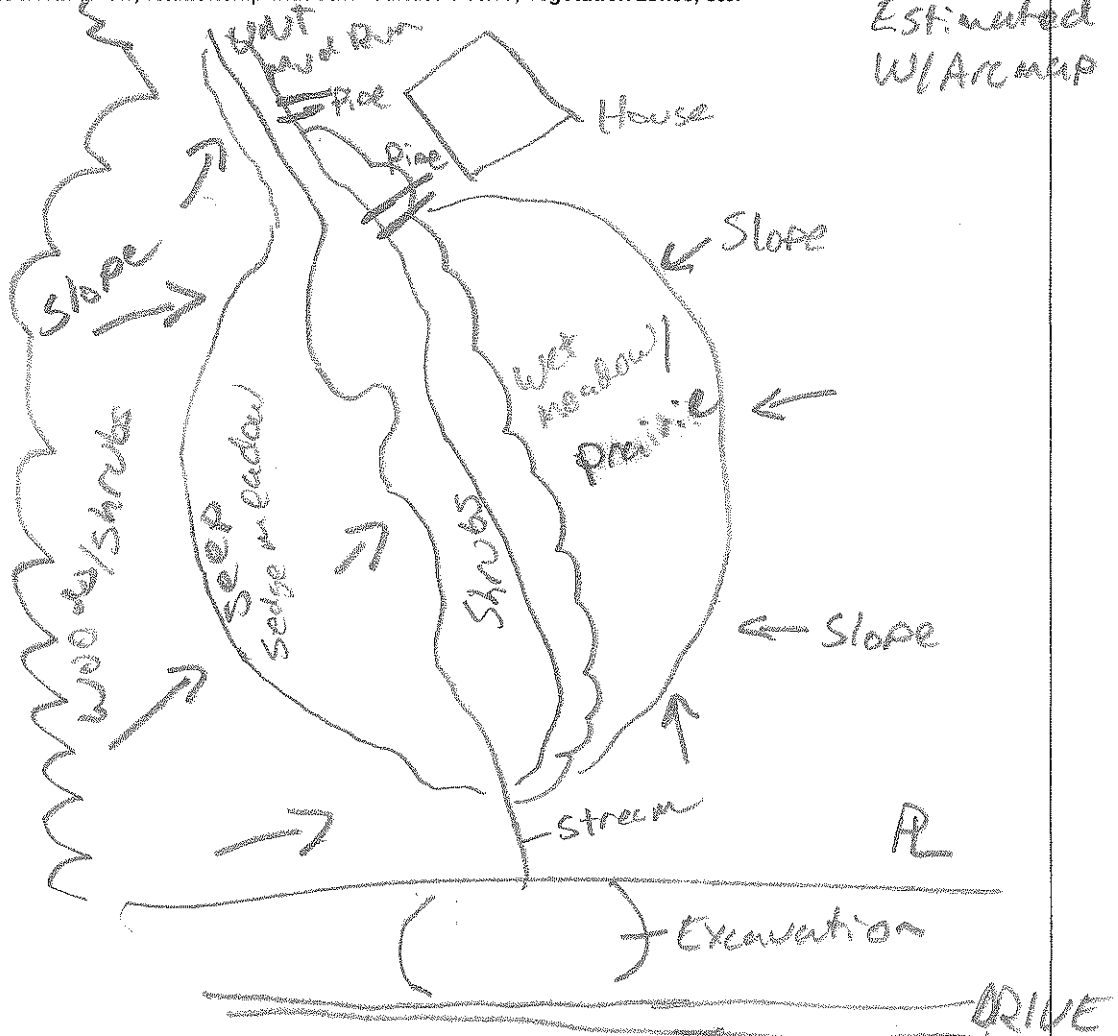 Estimated
W/Arcmap
UNT
Mud Run
Pipe
House
Pipe
Slope
Slope
Wet
meadow/
prairie
Woods/Shrubs
Seep
Sedge meadow
Shrubs
Slope
Stream
PL
Excavation
DRIVE